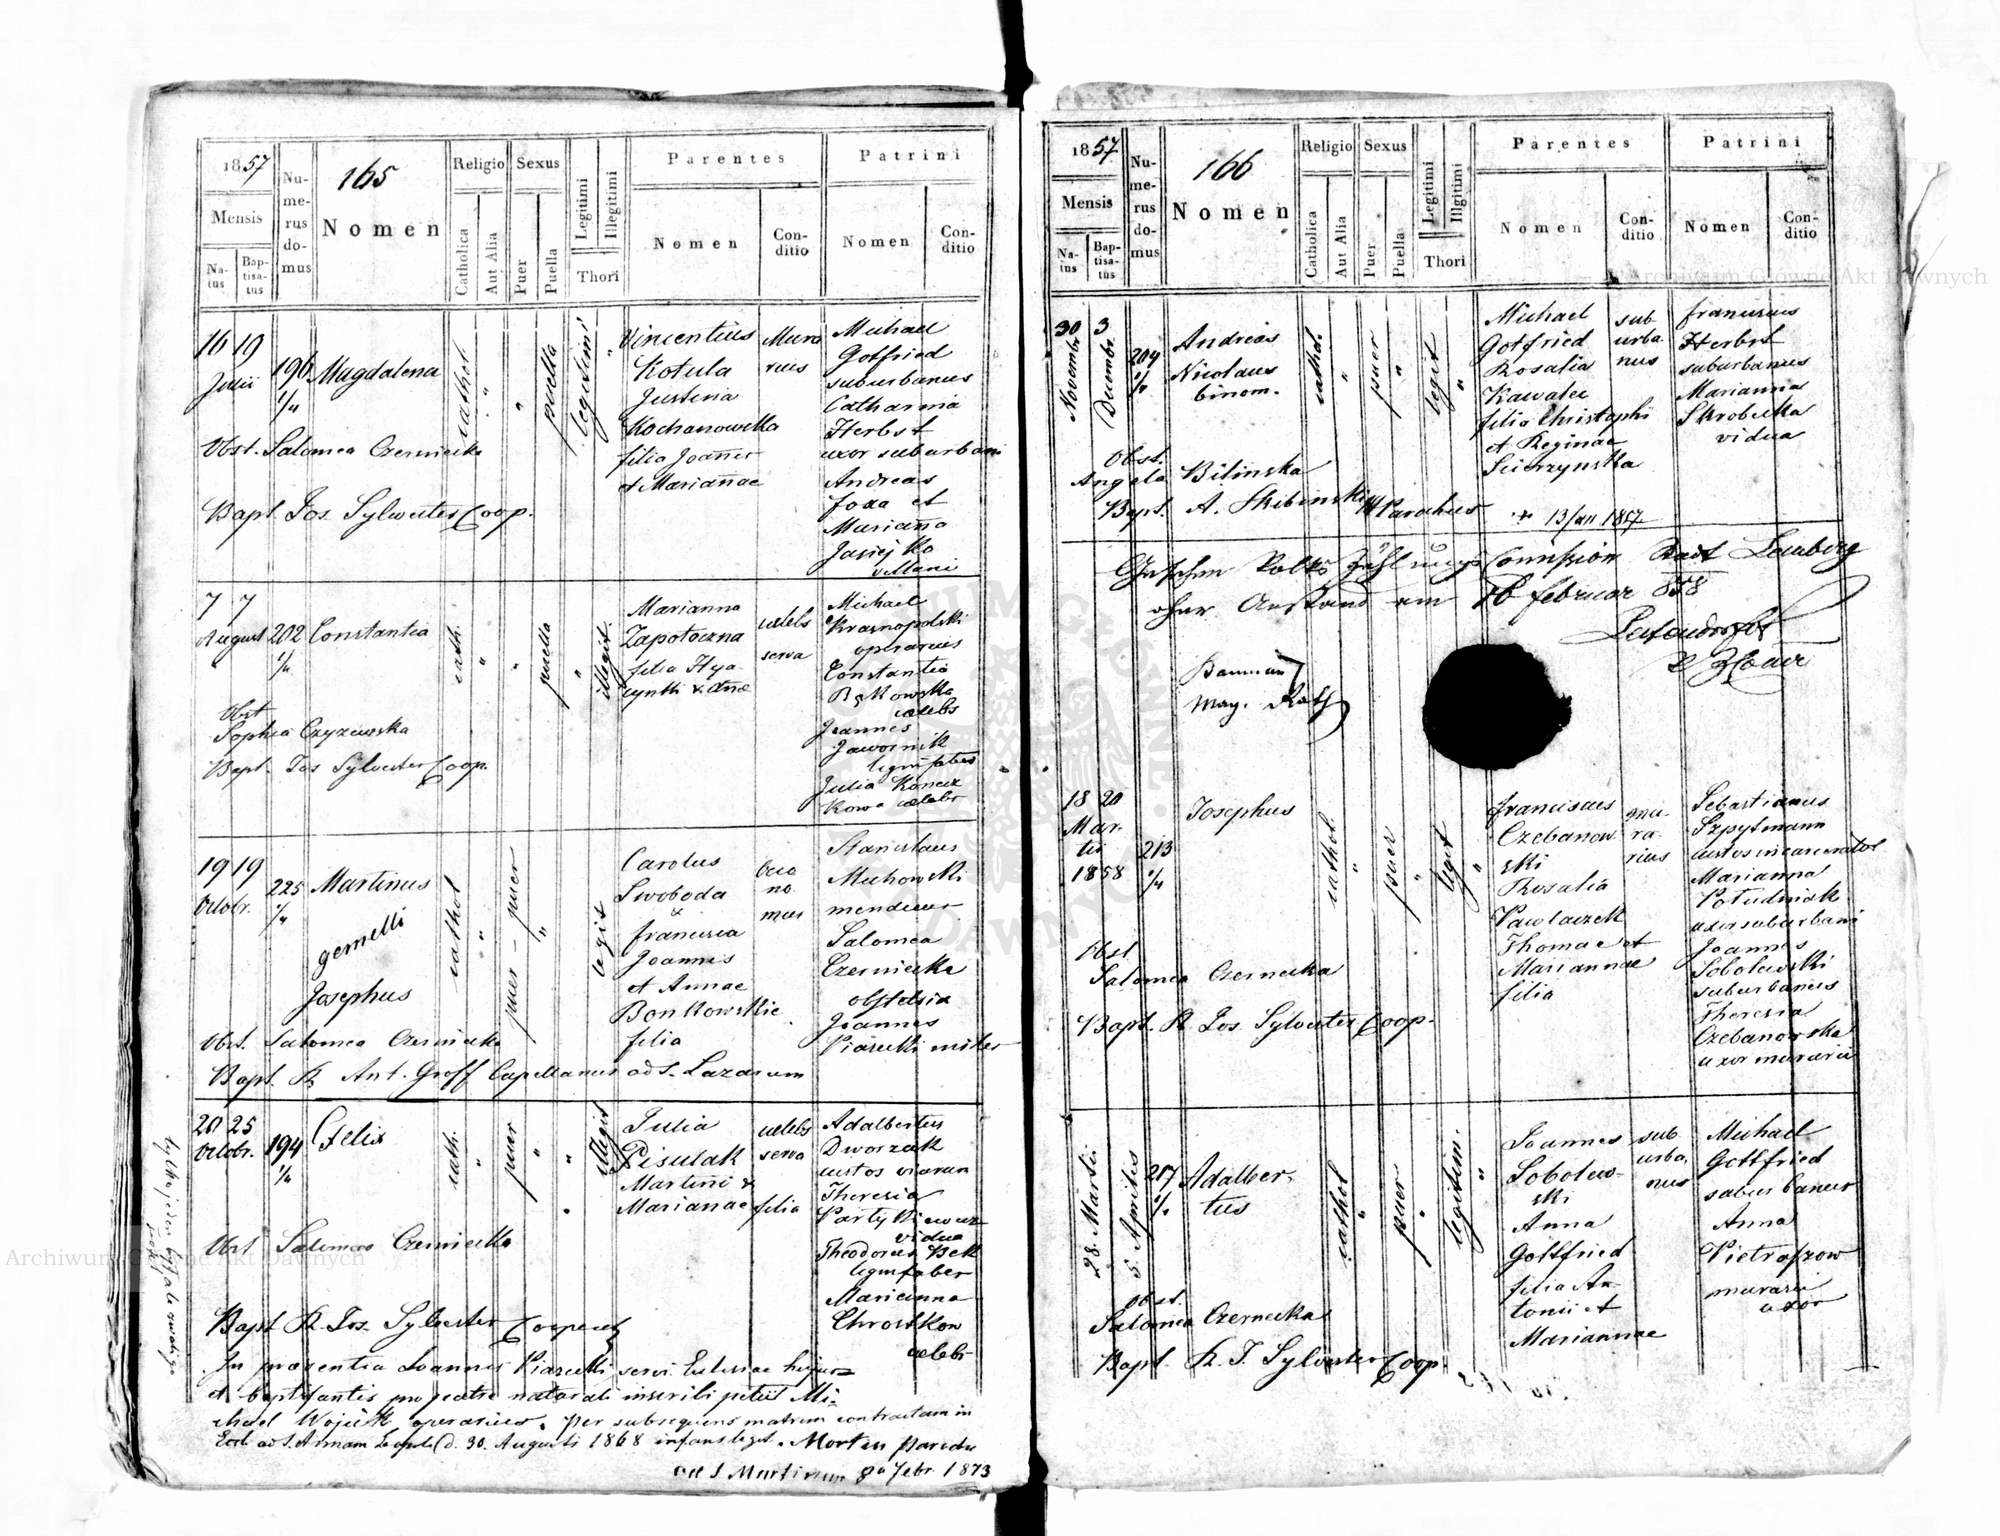 1857
Numerus domus
165
Nomen
Religio
Sexus
Legitimi
Illegitimi
Thori
Parentes
Patrini
Mensis
Natus
Baptisatus
Catholica
Aut Alia
Puer
Puella
Nomen
Conditio
Nomen
Conditio
16 19
Julii
196
1/4
Magdalena
cathol.
"
"
puella
legitimi
"
Vincentius
Kotula
Justina
Kochanowska
filia Joannis
et Marianae
Mura
rius
Michael
Gotfried
suburbanus
Catharina
Herbst
uxor suburbani
Andreas
et
Marianna
Jasiejko
Obst. Salomea Czerniecka
Bapt. Jos. Sylwester Coop.
7 7
August
202
1/4
Constantia
cath.
"
"
puella
"
illegit.
Marianna
Zapotoczna
filia Hya
cynthi & Annae
caelebs
serva
Michael
Krasnopolski
operarius
Constantia
Bąkowska
caelebs
Joannes
Jawornik
lignifaber
Julia
caelebs
Obst
Sophia Czyzewska
Bapt. Jos Sylvester Coop.
19 19
Octobr.
225
1/4
Martinus
gemelli
Josephus
cathol
"
puer - puer
"
legit
Carolus
Swoboda
&
Francisca
Joannis
et Annae
Bonkowskie
filia
Oeco
no
mus
Stanislaus
Michowski
mendicus
Salomea
Czerniecka
obstetrix
Joannes
Piasecki miles
Obst. Salomea Czerniecka
Bapt. R. Ant. Groff Capellanus ad S. Lazarum
20 25
Octobr.
194
1/4
Felix
cath.
"
puer
"
"
illegit
Julia
Pisulak
Martini &
Marianae filia
caelebs
serva
Adalbertus
Dworzak
custos viarum
Theresia
vidua
Theodorus Bek
lignifaber
Marianna
Chrostkow
caelebs
Obst Salomea Czerniecka
Bapt R. Jos. Sylvester Cooperat
In praezentia Joannis Piasecki servi Eclesiae hujus
et baptisantis pro patre naturali inscribi petiit Mi-
chael Wojcik operarius. Per subsequens matrim contractum in
Eccl. ad S. Annam Leopoli d. 30. Augusti 1868 infans legit.
ad S Martinum 8a Febr. 1873
1857
Numerus domus
166
Nomen
Religio
Sexus
Legitimi
Illgitimi
Thori
Parentes
Patrini
Mensis
Natus
Baptisatus
Catholica
Aut Alia
Puer
Puella
Nomen
Conditio
Nomen
Conditio
30 3
Novembr.
Decembr.
204
1/4
Andreas
Nicolaus
binom.
cathol.
"
puer
"
legit
"
Michael
Gotfried
Rosalia
Kawalec
filia Christophi
et Reginae
Scierzynska
sub-
urba
nus
Franciscus
Herbst
suburbanus
Marianna
Skrobecka
vidua
Obst.
Angela Bilinska
Bapt. A. Skibinski Parochus
+ 13 Jan 1857
Gesehen Volks Zählungs Comission Stadt Lemberg
ohne Anstand am 16 Februar 858
May. Rath
18 20
Mar-
tii
1858
213
1/4
Josephus
cathol.
"
puer
"
legit
"
Franciscus
Czebanow
ski
Rosalia
Pawlaczek
Thomae et
Mariannae
filia
mu-
ra-
rius
Sebastianus
Szpytmann
custos incarceratos
Marianna
Poludniak
uxor suburbani
Joannes
Sobolewski
suburbanus
Theresia
Czebanowska
uxor murarii
Obst
Salomea Czernecka
Bapt. R. Jos. Sylvester Coop.
28. Martii
5. Aprilis
217
1/4
Adalber-
tus
cathol
"
puer
"
legitim.
"
Joannes
Sobolew-
ski
Anna
Gottfried
filia An
tonii et
Mariannae
sub
urba-
nus
Michael
Gottfried
suburbanus
Anna
Pietraszow
murarii
uxor
Obst.
Salomea Czernecka
Bapt. R. J. Sylvester Coop.
Archiwum Główne Akt Dawnych
Archiwum Główne Akt Dawnych